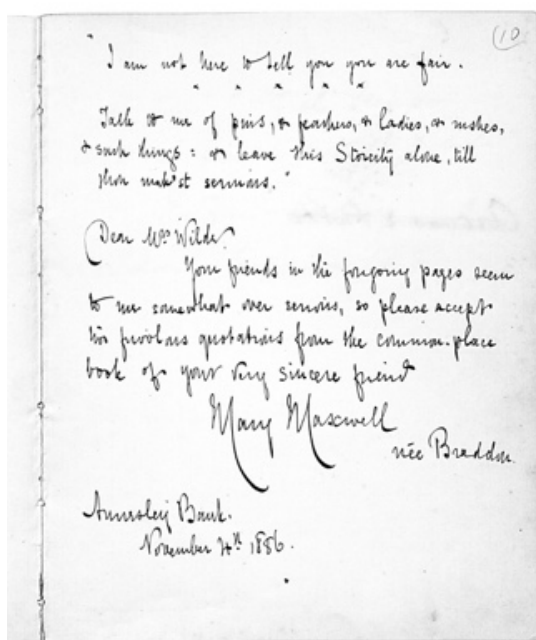 10
" I am not here to tell you you are fair.
" " " " "
Talk to me of pins, & feathers, & ladies, & rushes,
& such things: & leave this Stoicity alone, till
thou mak'st sermons."
Dear Mrs Wilde.
Your friends in the foregoing pages seem
to me somewhat over serious, so please accept
two frivolous quotations from the common-place
book of your very sincere friend
Mary Maxwell
née Braddon.
Annesley Bank.
November 4th 1886.